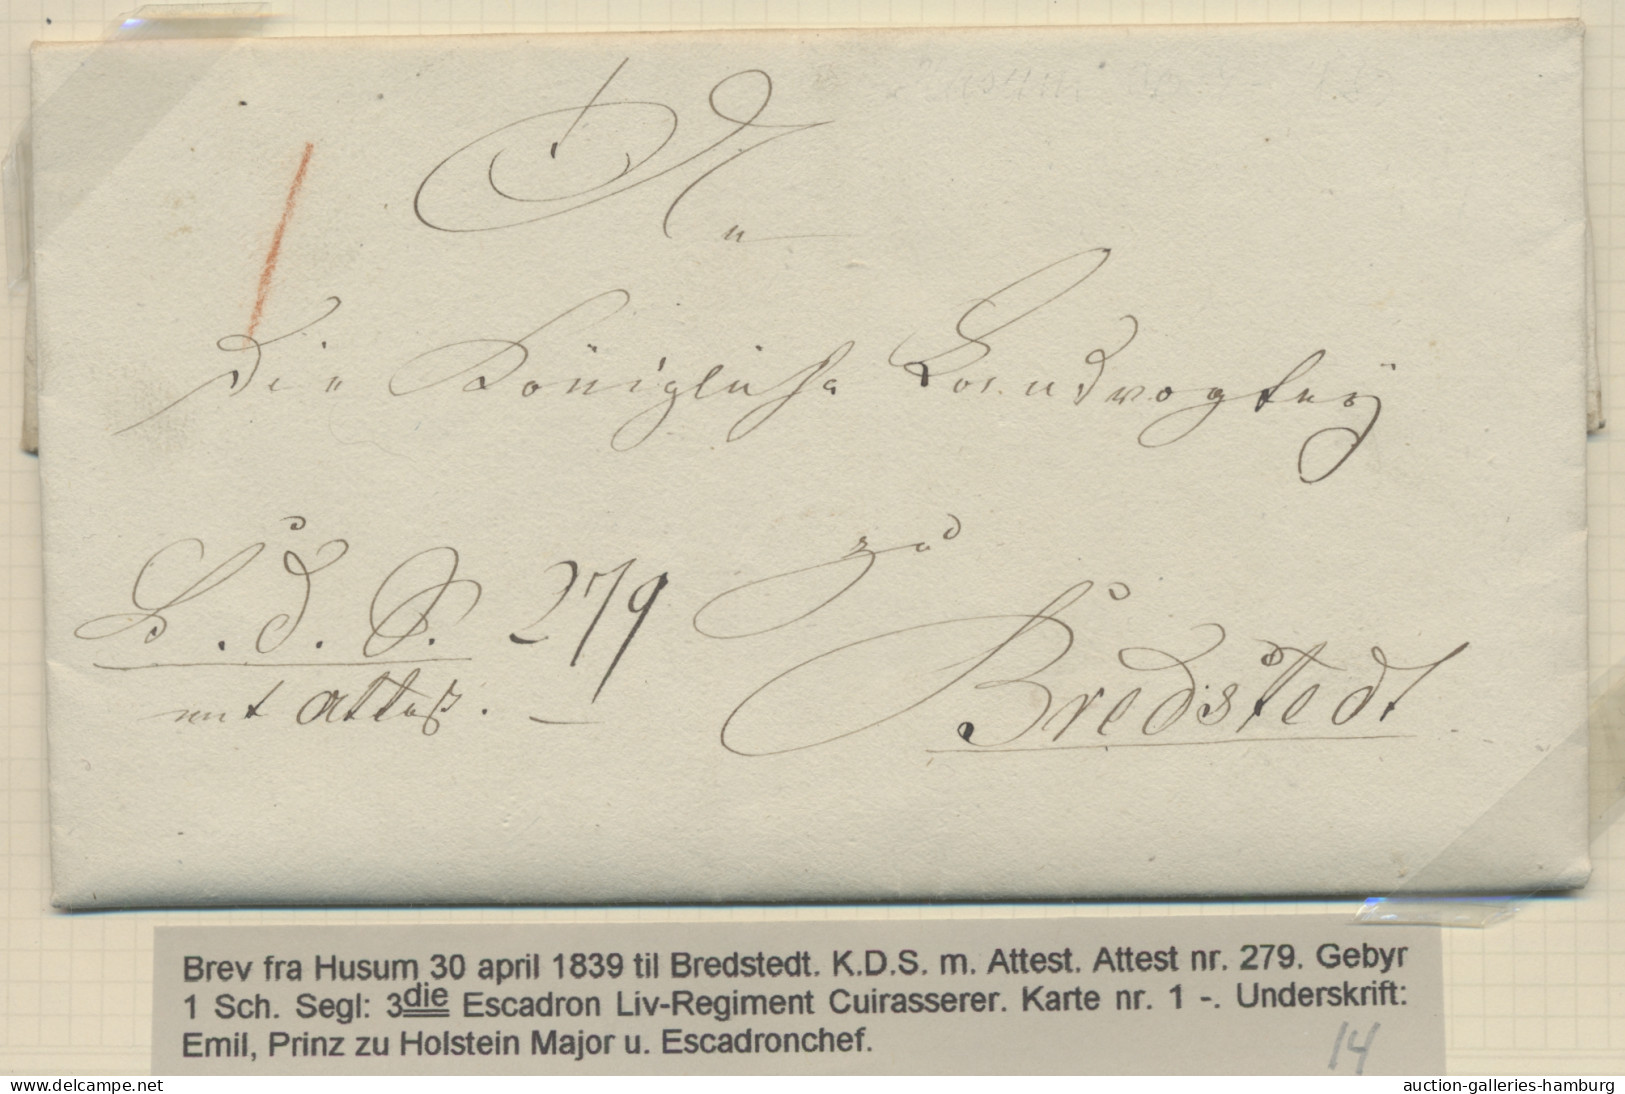 An
die Königliche Landvogtey
K. d. S. 279 zu
mit Attest. Bredstedt
Brev fra Husum 30 april 1839 til Bredstedt. K.D.S. m. Attest. Attest nr. 279. Gebyr
1 Sch. Segl: 3die Escadron Liv-Regiment Cuirasserer. Karte nr. 1 -. Underskrift:
Emil, Prinz zu Holstein Major u. Escadronchef.
14
www.delcampe.net
auction-galleries-hamburg